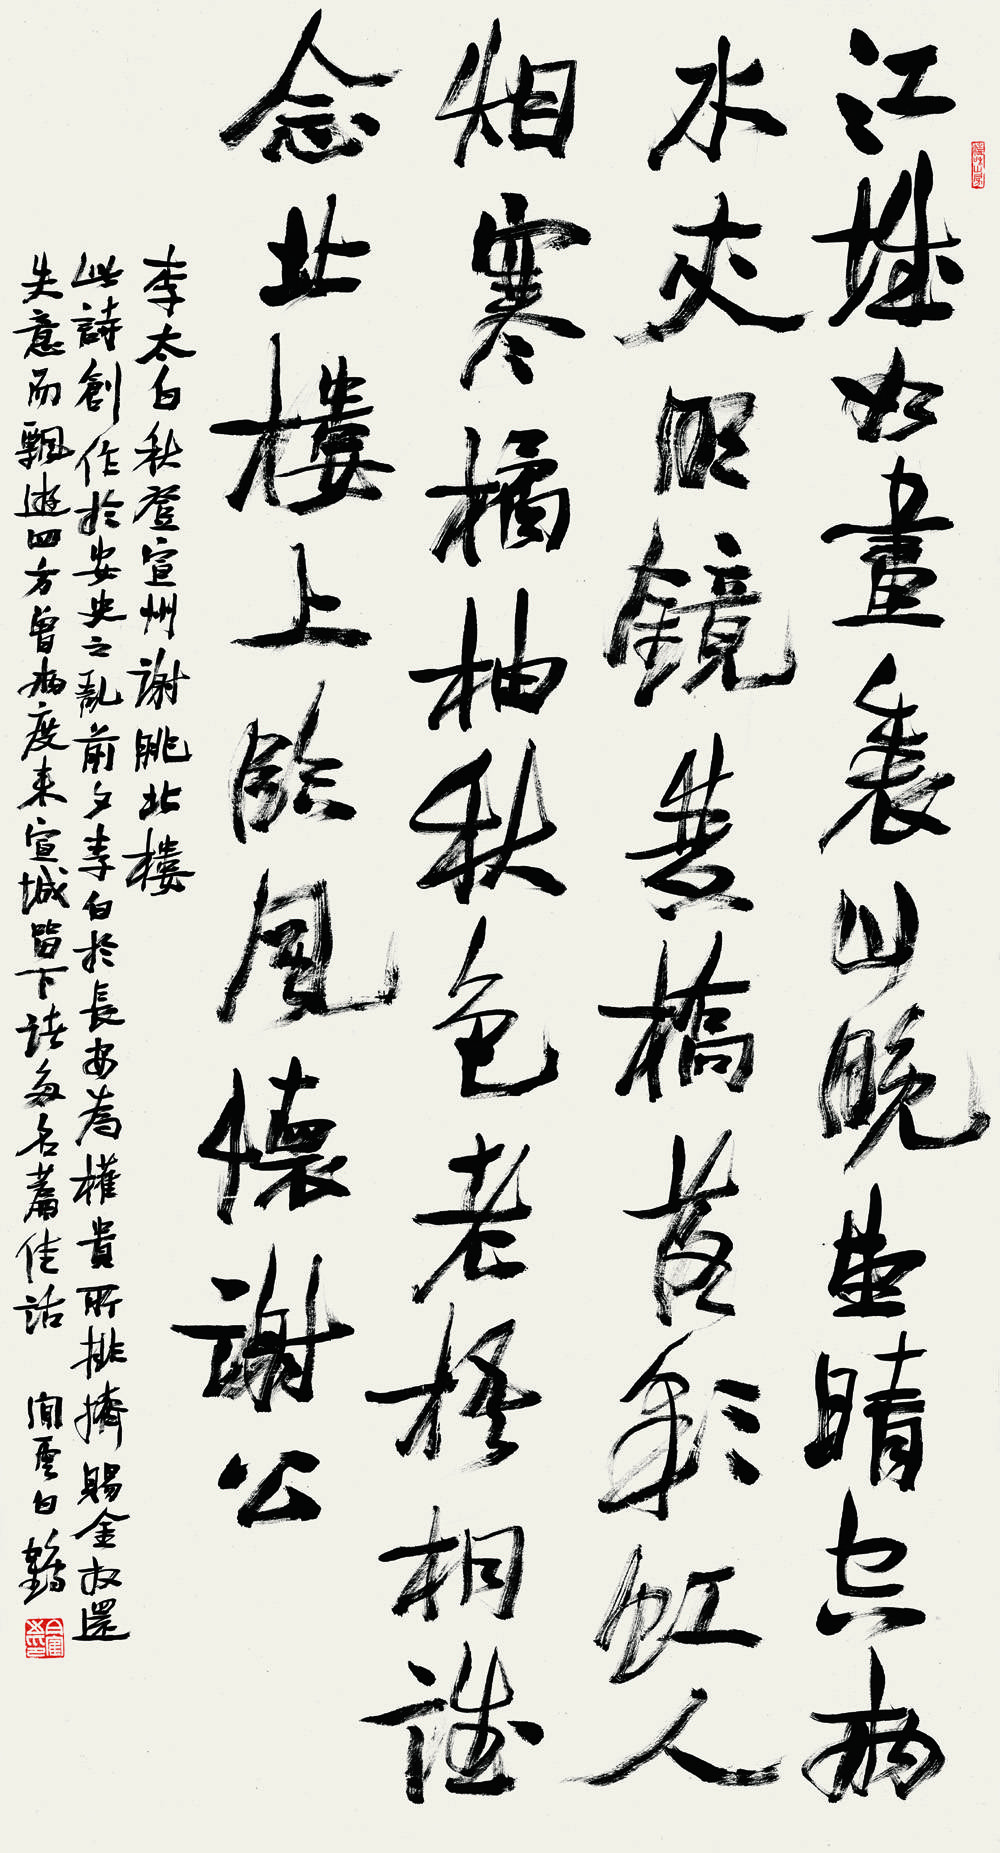 江城如畫裏山晚望晴空兩
水夾明鏡雙橋落彩虹人
烟寒橘柚秋色老梧桐誰
念北樓上臨風懷謝公
李太白秋登宣州謝朓北樓
此詩創作於安史之亂前夕李白於長安為權貴所排擠賜金放還
失意而飄遊四方曾兩度來宣城留下諸多名篇佳話 閒雲白鶴